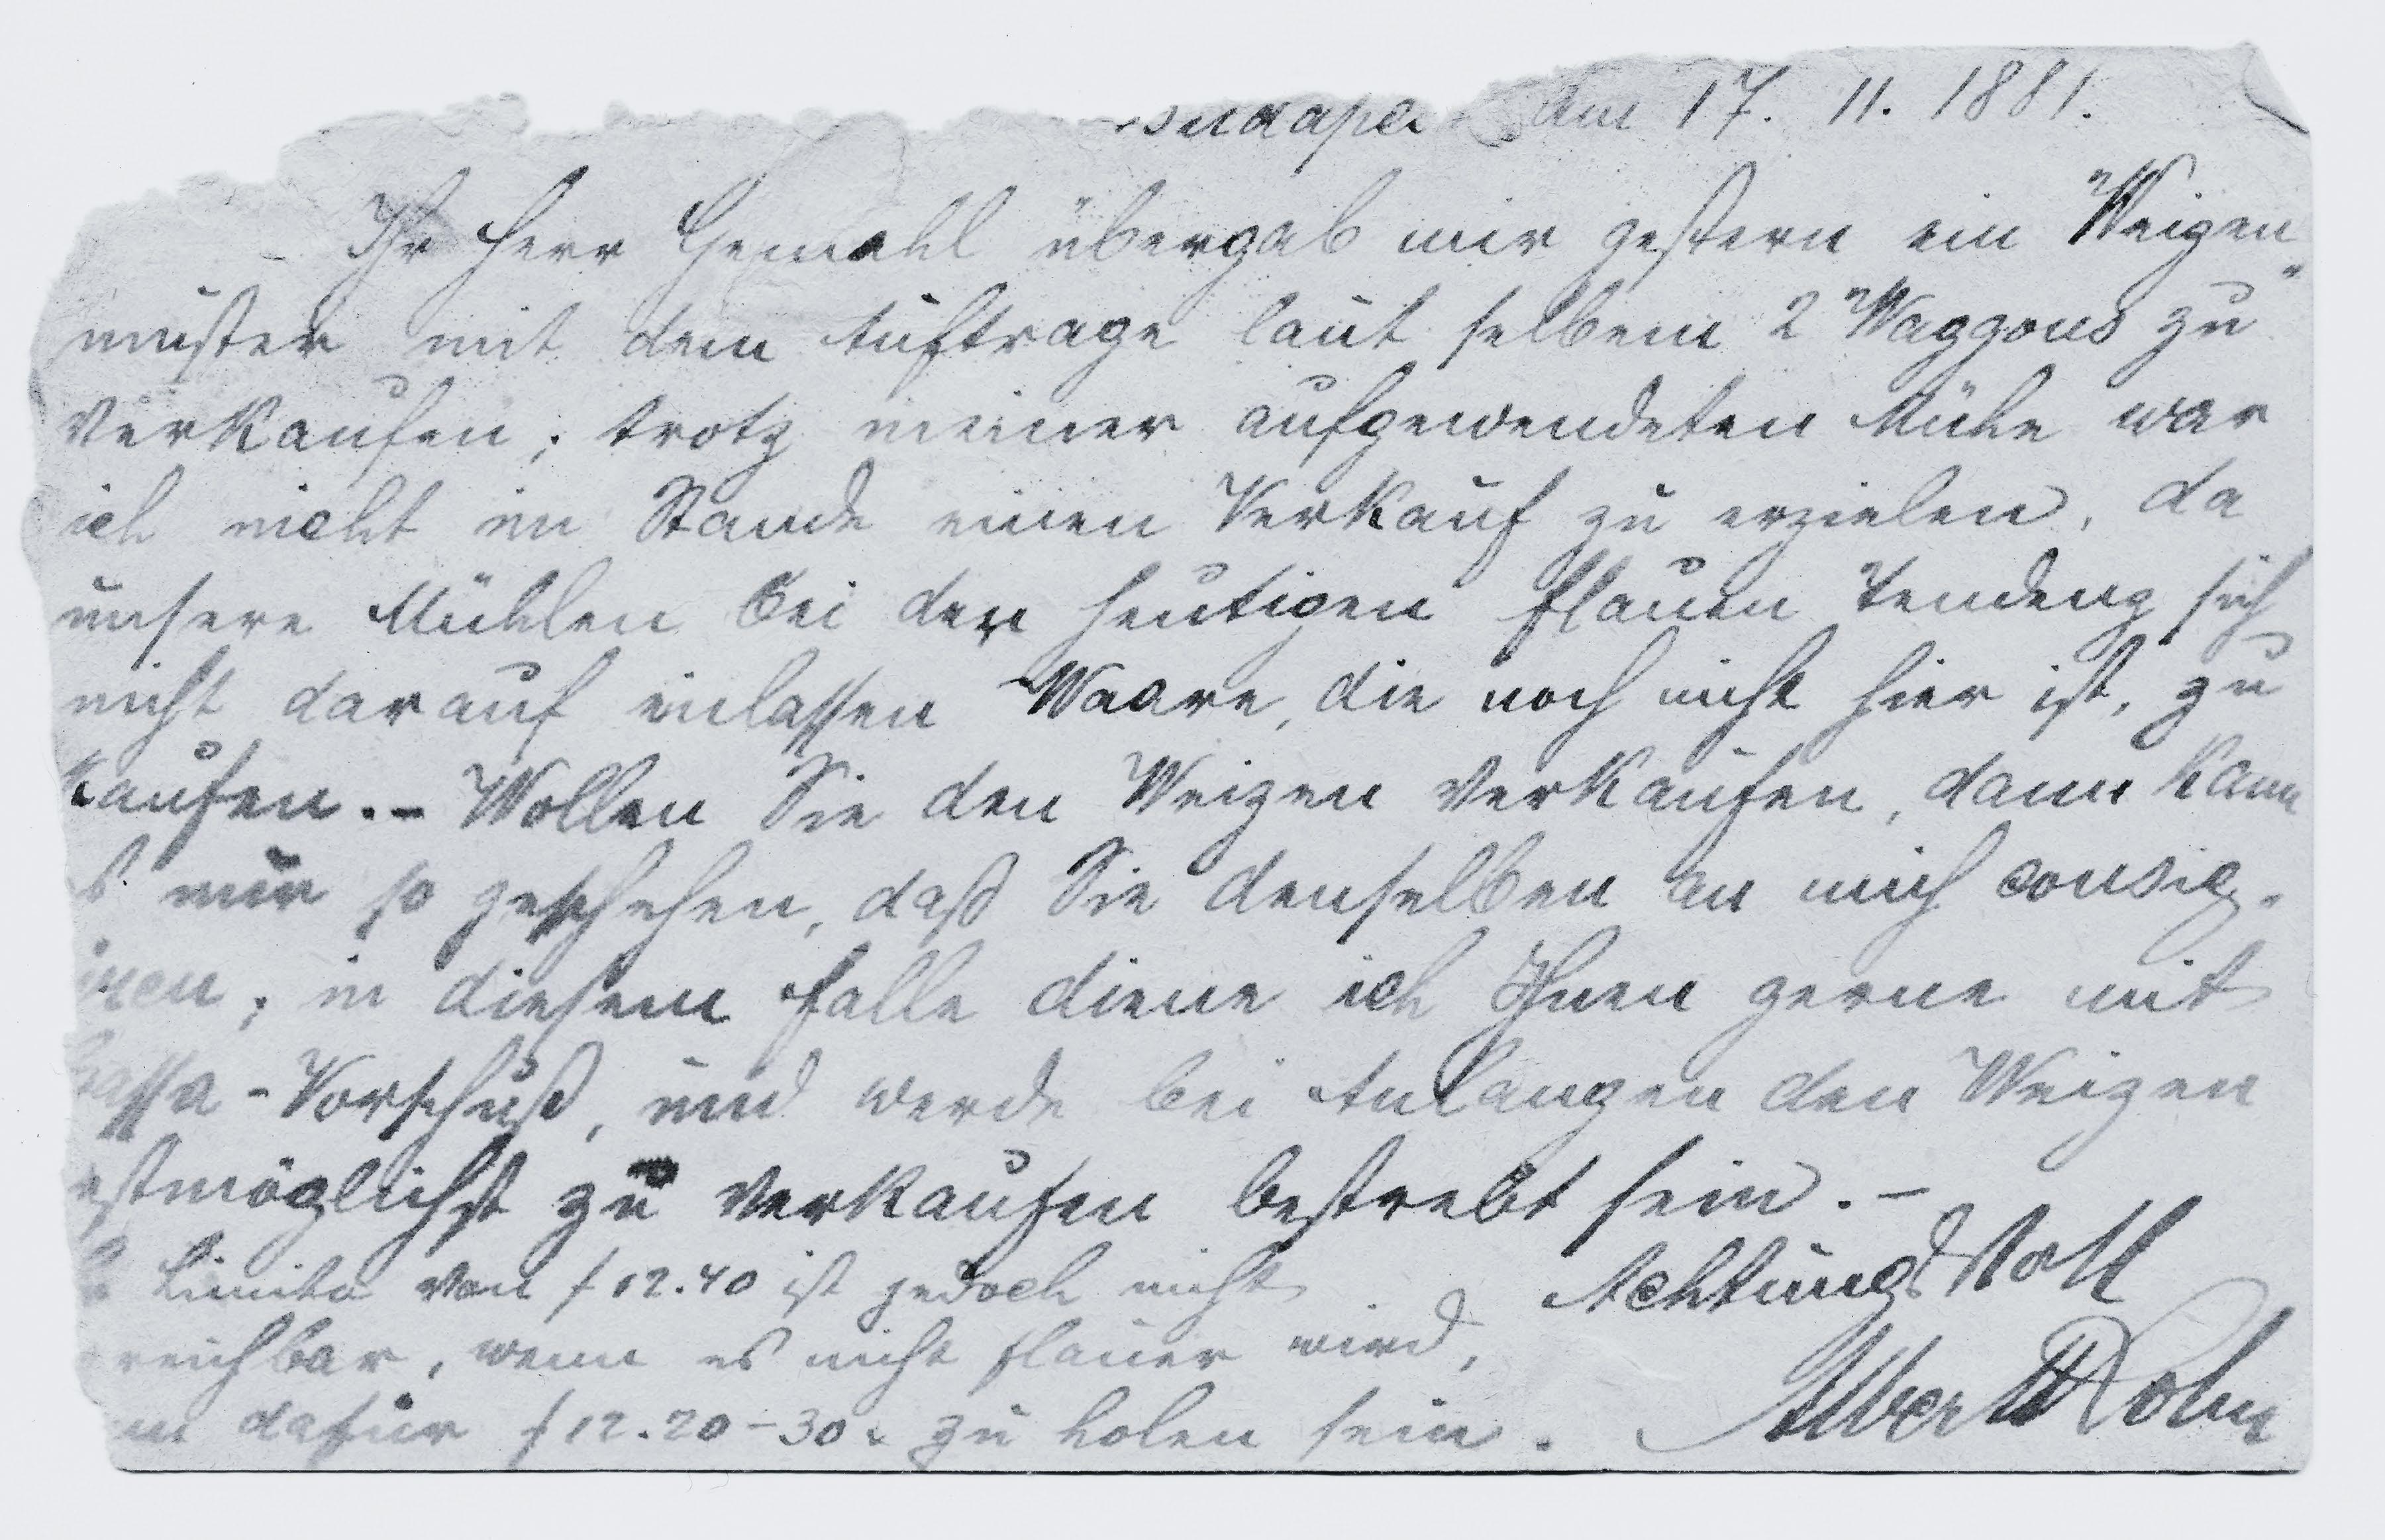 am 17. 11. 1881.
Ihr Herr Gemahl übergab mir gestern ein Weizen"
muster mit dem Auftrage laut selbem 2 Waggons zu
verkaufen; trotz meiner aufgewendeten Mühe war
ich nicht im Stande einen Verkauf zu erzielen, da
unsere Mühlen bei der heutigen flauen Tendenz sich
nicht darauf einlassen Waare, die noch nicht hier ist, zu
kaufen. – Wollen Sie den Weizen verkaufen, dann kann
nur so geschehen, daß Sie denselben an mich consig-
iren; in diesem Falle diene ich Ihnen gerne mit
Cassa-Vorschuß, und werde bei Anlangen den Weizen
estmöglichst zu verkaufen bestrebt sein. –
Limito von f 12.40 ist jedoch nicht
reichbar, wenn es nicht flauer wird,
dafür f 12.20-30. zu holen sein.
Achtungsvoll
Albert Kohn